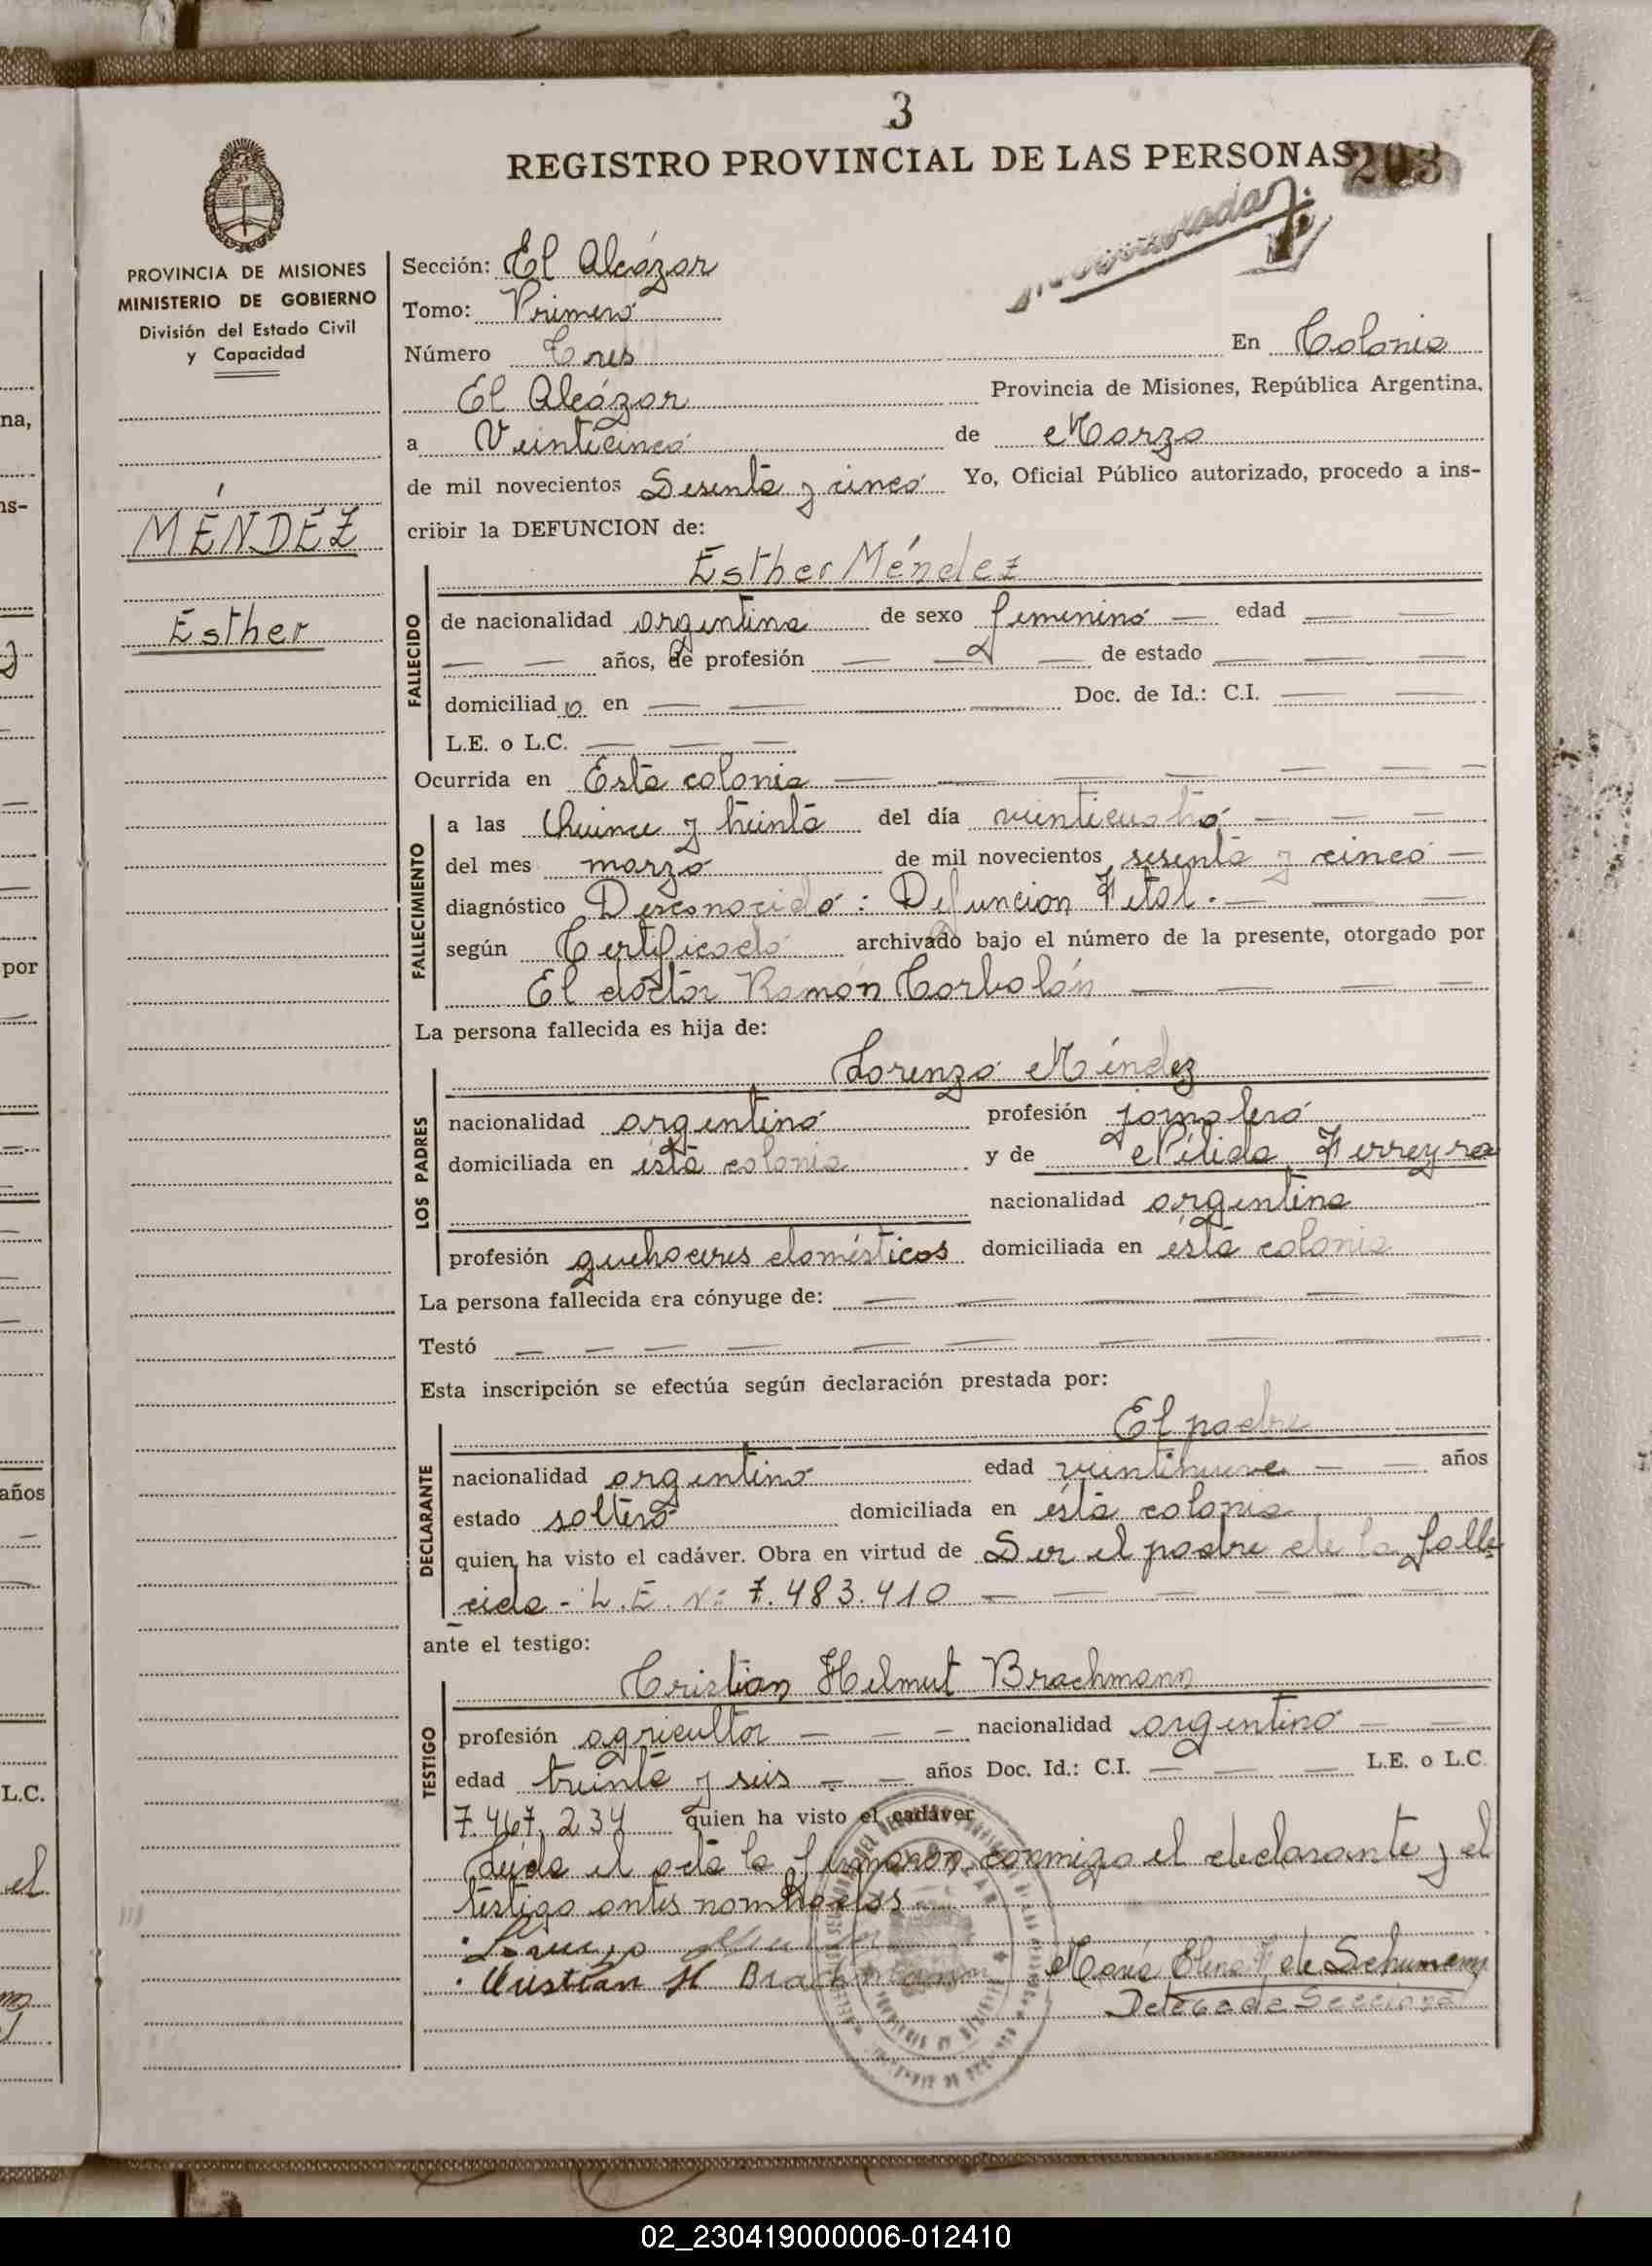 3
REGISTRO PROVINCIAL DE LAS PERSONAS
203
PROVINCIA DE MISIONES
MINISTERIO DE GOBIERNO
División del Estado Civil
y Capacidad
MÉNDEZ
Esther
Sección: El Alcázar
Tomo: Primero
Número Tres En Colonia
El Alcázar Provincia de Misiones, República Argentina,
a Veinticinco de Marzo
de mil novecientos Sesenta y cinco Yo, Oficial Público autorizado, procedo a ins-
cribir la DEFUNCION de:
Esther Méndez
FALLECIDO
de nacionalidad argentina de sexo femenino — edad — —
— — años, de profesión — — — de estado — — —
domiciliad o en — — — — Doc. de Id.: C.I. — —
L.E. o L.C. — — —
Ocurrida en Esta colonia — — — — — — —
FALLECIMIENTO
a las Quince y treinta del día veinticuatro — — —
del mes marzo de mil novecientos sesenta y cinco —
diagnóstico Desconocido: Defuncion Fetal. — — —
según Certificado archivado bajo el número de la presente, otorgado por
El doctor Ramón — — — —
La persona fallecida es hija de:
Lorenzo Méndez
LOS PADRES
nacionalidad argentino profesión jornalero
domiciliada en ésta colonia y de Nélida Ferreyra
nacionalidad argentina
profesión quehaceres domésticos domiciliada en ésta colonia
La persona fallecida era cónyuge de: — — — — — —
Testó — — — — — — — — — —
Esta inscripción se efectúa según declaración prestada por:
El padre
DECLARANTE
nacionalidad argentino edad veintinueve — — años
estado soltero domiciliada en ésta colonia
quien ha visto el cadáver. Obra en virtud de Ser el padre de la falle
cida - L.E. Nº 7.483.410 — — — — — — —
ante el testigo:
Cristian Helmut Brachmann
TESTIGO
profesión agricultor — — — nacionalidad argentino — —
edad treinta y seis — — años Doc. Id.: C.I. — — — L.E. o L.C.
7.467.234 quien ha visto el cadáver
Leída el acta la firmaron conmigo el declarante y el
testigo antes nombrados
Cristian H Brachmann
María Elena F. de Schumann
Delegada Seccional
na,
ns-
por
años
L.C.
el
02_230419000006-012410